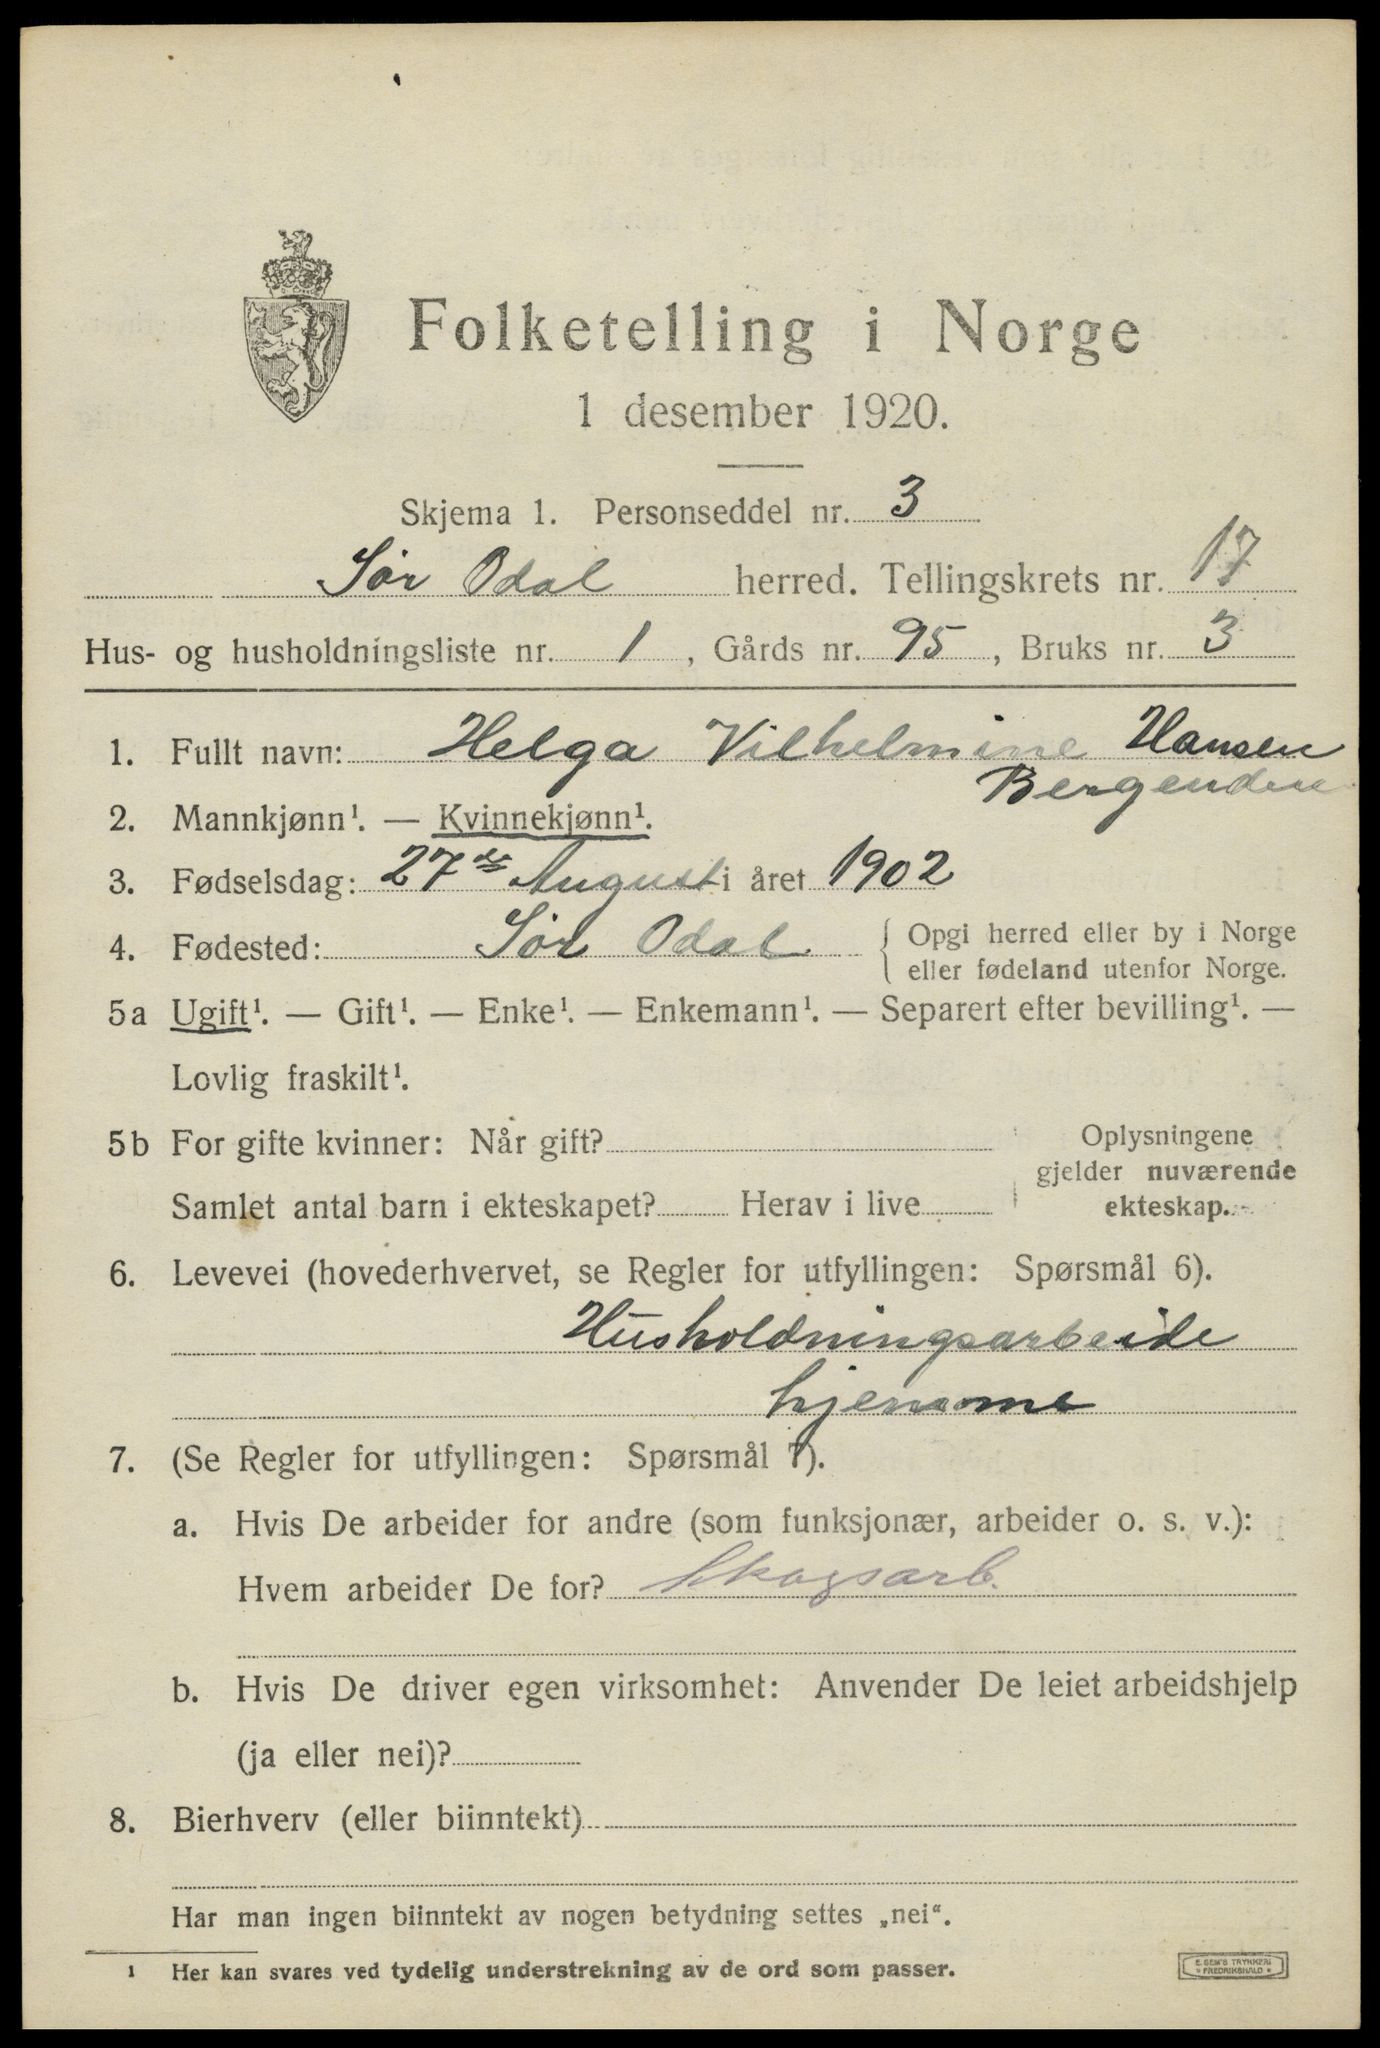 Folketelling i Norge
1 desember 1920.
Skjema 1. Personseddel nr. 3
Sør Odal herred. Tellingskrets nr. 17
Hus- og husholdningsliste nr. 1, Gårds nr. 95, Bruks nr. 3
1. Fullt navn: Helga Vilhelmine Hansen
Bergenden
2. Mannkjønn¹. — Kvinnekjønn¹.
3. Fødselsdag: 27de August i året 1902
4. Fødested: Sør Odal { Opgi herred eller by i Norge
eller fødeland utenfor Norge.
5a Ugift¹. — Gift¹. — Enke¹. — Enkemann¹. — Separert efter bevilling¹. —
Lovlig fraskilt¹.
5b For gifte kvinner: Når gift?
Samlet antal barn i ekteskapet? Herav i live
Oplysningene
gjelder nuværende
ekteskap.
6. Levevei (hovederhvervet, se Regler for utfyllingen: Spørsmål 6).
Husholdningsarbeide
hjemme
7. (Se Regler for utfyllingen: Spørsmål 7).
a. Hvis De arbeider for andre (som funksjonær, arbeider o. s. v.):
Hvem arbeider De for? Skogsarb.
b. Hvis De driver egen virksomhet: Anvender De leiet arbeidshjelp
(ja eller nei)?
8. Bierhverv (eller biinntekt)
Har man ingen biinntekt av nogen betydning settes „nei“.
¹ Her kan svares ved tydelig understrekning av de ord som passer.
E. SEM'S TRYKKERI
* FREDRIKSHALD *